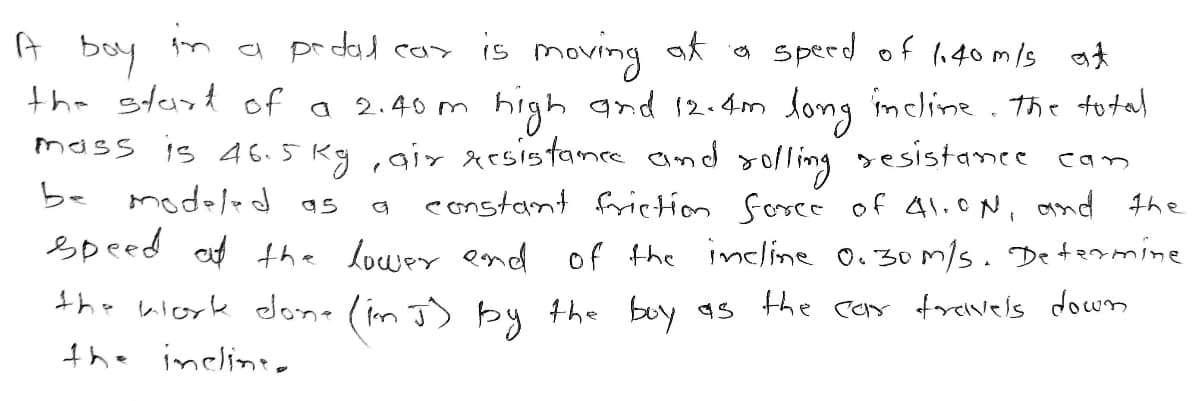 A boy in a pedal car is moving at a speed of 1.40 m/s at
the start of a 2.40 m high and 12.4m long incline. The total
mass is 46.5 Kg, air resistance and rolling resistance can
be modeled as a constant friction force of 41.0 N, and the
speed at the lower end of the incline 0.30 m/s. Determine
the work done (in J) by the boy as the car travels down
the incline.